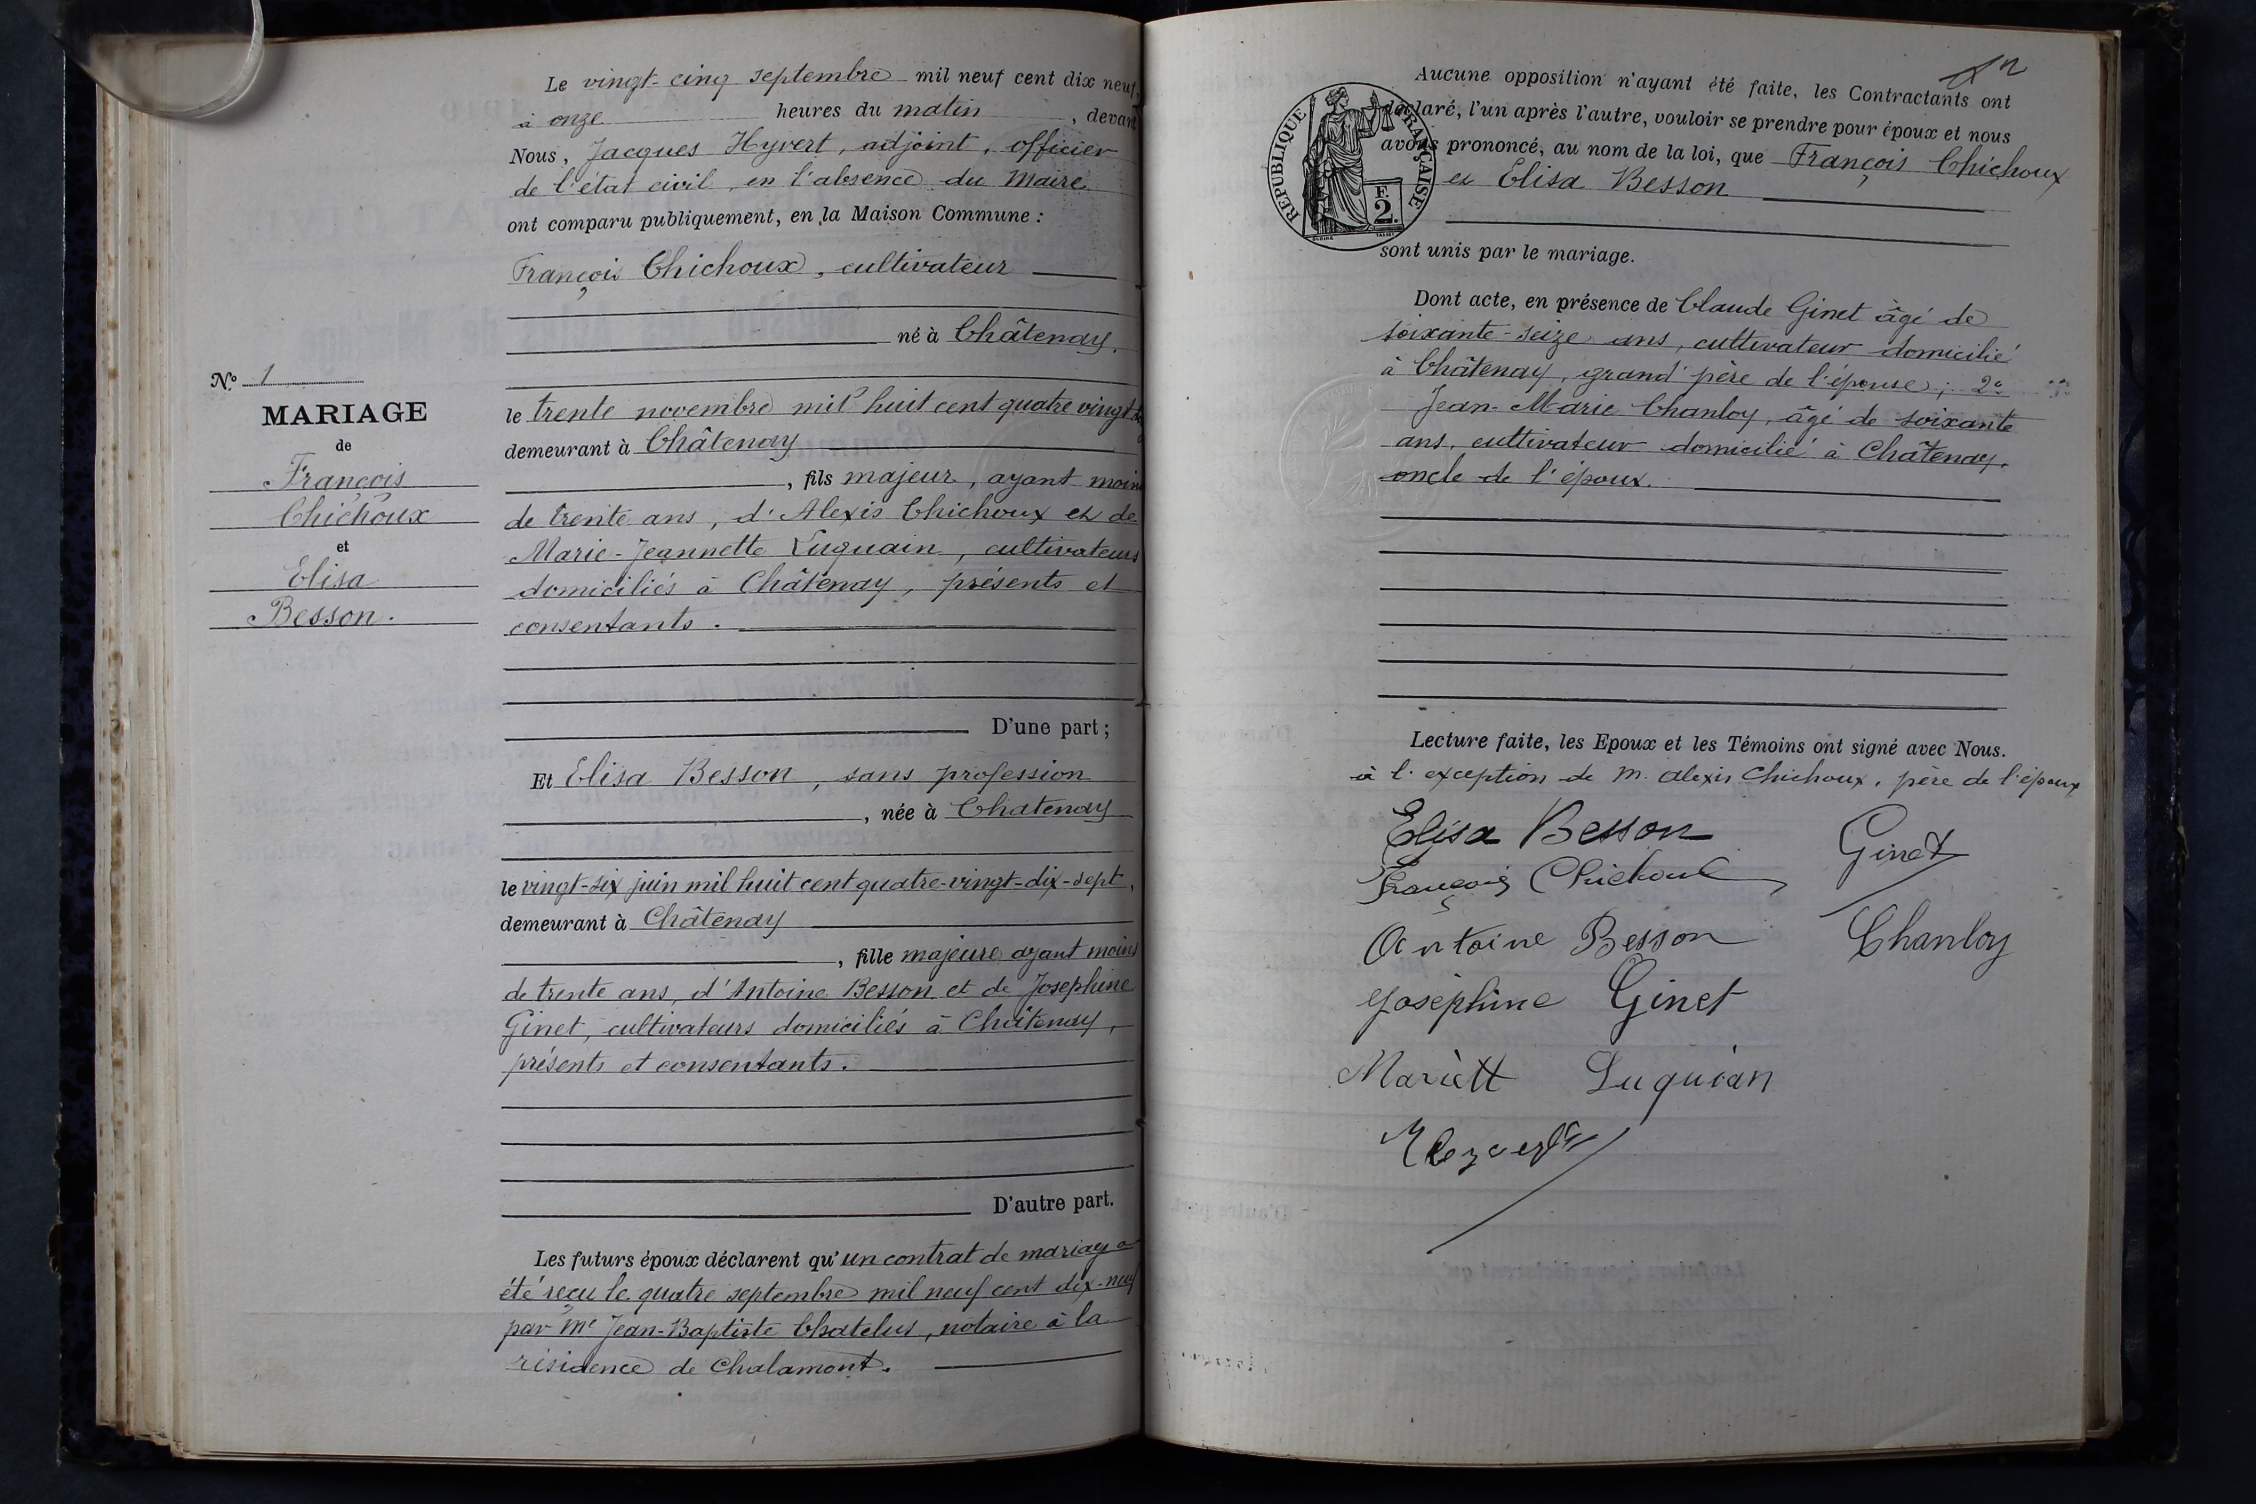 Le vingt-cinq septembre mil neuf cent dix neuf,
à onze heures du matin, devant
Nous, Jacques Hyvert, adjoint, officier
de l'état civil, en l'absence du Maire
ont comparu publiquement, en la Maison Commune :
François Chichoux, cultivateur
né à Châtenay,
le trente novembre mil huit cent quatre vingt
demeurant à Châtenay
, fils majeur, ayant moins
de trente ans, d'Alexis Chichoux et de
Marie-Jeannette Luquain, cultivateurs
domiciliés à Châtenay, présents et
consentants.
D'une part ;
Et Elisa Besson, sans profession
, née à Chatenay
le vingt-six juin mil huit cent quatre-vingt-dix-sept,
demeurant à Châtenay
, fille majeure ayant moins
de trente ans, d'Antoine Besson et de Josephine
Ginet, cultivateurs domiciliés à Châtenay,
présents et consentants.
D'autre part.
Les futurs époux déclarent qu'un contrat de mariage a
été reçu le quatre septembre mil neuf cent dix-neuf
par Me Jean-Baptiste Chatelus, notaire à la
résidence de Chalamont.
N° 1
MARIAGE
de
François
Chichoux
et
Elisa
Besson.
Aucune opposition n'ayant été faite, les Contractants ont
déclaré, l'un après l'autre, vouloir se prendre pour époux et nous
avons prononcé, au nom de la loi, que François Chichoux
et Elisa Besson
sont unis par le mariage.
RÉPUBLIQUE FRANÇAISE
F.
2.
Dont acte, en présence de Claude Ginet âgé de
soixante-seize ans, cultivateur domicilié
à Châtenay, grand'père de l'épouse ; 2°
Jean-Marie Chanloy, âgé de soixante
ans, cultivateur domicilié à Châtenay,
oncle de l'époux.
Lecture faite, les Epoux et les Témoins ont signé avec Nous.
à l'exception de M. Alexis Chichoux, père de l'époux
Elisa Besson
Ginet
François Chichoux
Antoine Besson
Chanloy
Joséphine Ginet
Mariett Luquian